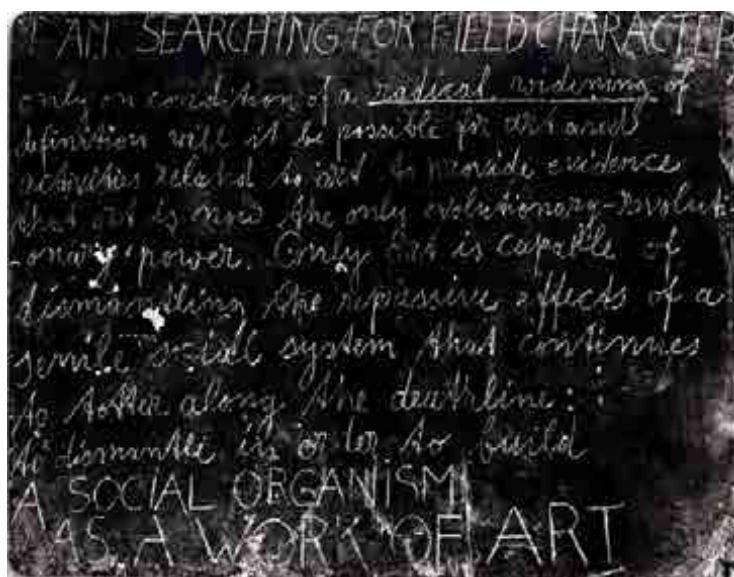 I AM SEARCHING FOR FIELD CHARACTER
only on condition of a radical widening of
definition will it be possible for art and
activities related to art to provide evidence
that art is now the only evolutionary-revoluti-
-onary power. Only art is capable of
dismantling the repressive effects of a
senile social system that continues
to totter along the deathline:
to dismantle in order to build
A SOCIAL ORGANISM
AS A WORK OF ART